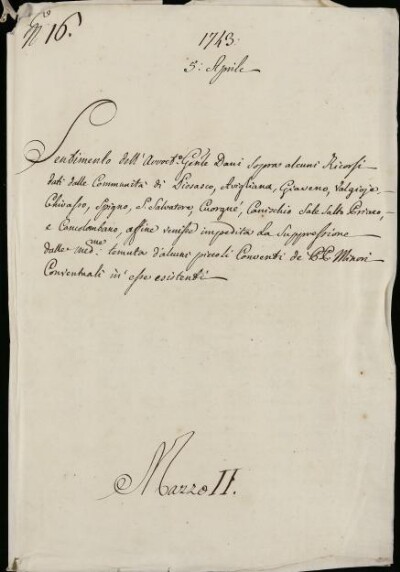 N.º 16.
1743.
5: Aprile
Sentimento dell'Avvocto. Gnle Dani sopra alcuni Ricorsi
dati dalle Communità di Piosasco, Avigliana, Giaveno, Valgioja,
Chivasso, Spigno, S. Salvatore, Cuorgnè, Canischio Sale Salto Priaco,
e Camolombano, affine venisse impedita la Suppressione
dalle medme. temuta d'alcuni piccoli Conventi de PP. Minori
Conventuali in esse esistenti
Mazzo II.